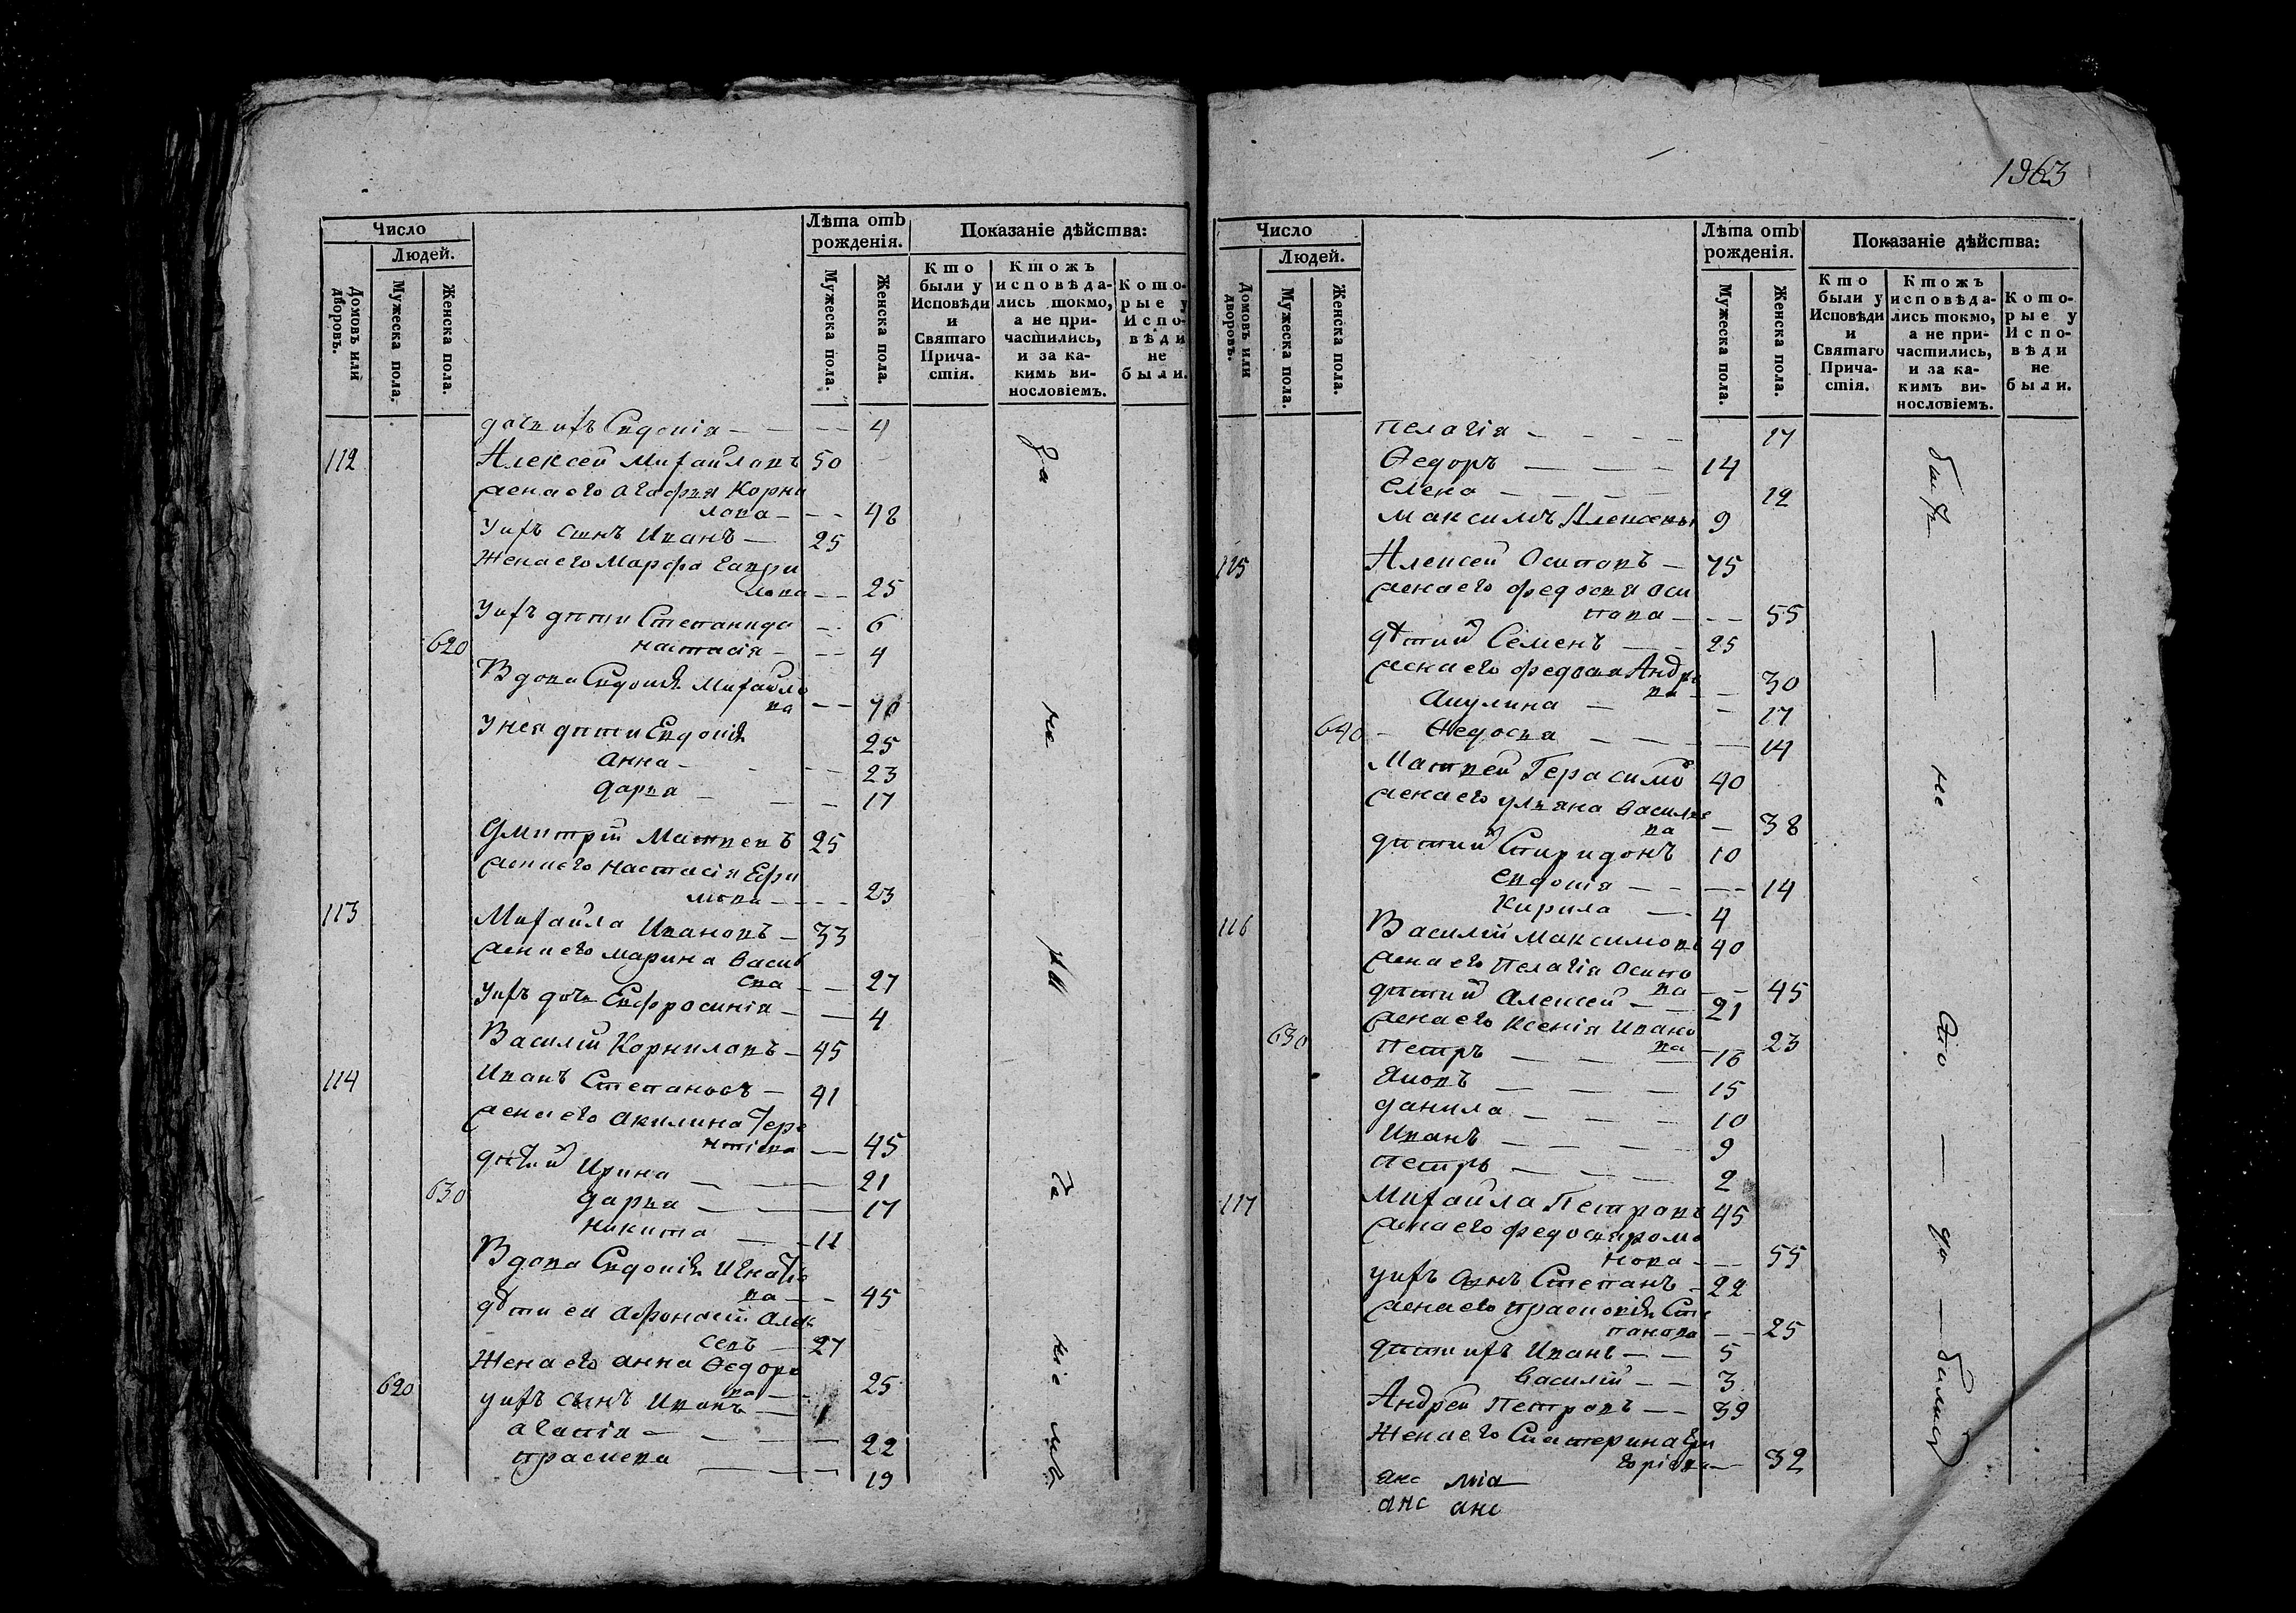 Число
Людей.
Домовъ или дворовъ.
Мужеска пола.
Женска пола.
Лѣта отъ рожденія.
Мужеска пола.
Женска пола.
Показаніе дѣйства:
Кто были у Исповѣди и Святаго Прича-стія.
Ктожъ исповѣда-лись токмо, а не при-частились, и за ка-кимъ ви-нословіемъ.
Кото-рые у Испо-вѣди не были.
дочь ихъ Евдокія — 4
112 Алексей Михайловъ 50
жена его Агафья Корни
лова — 48
У ихъ сынъ Иванъ — 25
Жена его Марфа Гаври
лова — 25
У ихъ дѣти Степанида — 6
620 Настасія — 4
Вдова Евдокія Михайло
ва — 70
У нея дѣти Евдокія 25
Анна — 23
Дарья — 17
Дмитрій Матвеевъ 25
жена его Настасія Ефи
мова — 23
113 Михайла Ивановъ — 33
жена его Марина Васил
ева — 27
У ихъ дочь Евфросинія — 4
Василій Корниловъ — 45
114 Иванъ Степановъ — 41
жена его Акилина Тере
нтіева — 45
дѣти их Ирина — 21
630 Дарья — 17
Никита — 11
Вдова Евдокія Игнатіе
ва — 45
дѣти ея Афонасій Алек
сеевъ — 27
Жена его Анна Ѳедоро
ва — 25
620 У ихъ сынъ Иванъ — 1
Агапія — 22
Прасковья — 19
За не
ніе мъ
1963
Число
Людей.
Домовъ или дворовъ.
Мужеска пола.
Женска пола.
Лѣта отъ рожденія.
Мужеска пола.
Женска пола.
Показаніе дѣйства:
Кто были у Исповѣди и Святаго Прича-стія.
Ктожъ исповѣда-лись токмо, а не при-частились, и за ка-кимъ ви-нословіемъ.
Кото-рые у Испо-вѣди не были.
Пелагія — 17
Ѳедоръ — 14
Елена — 12
Максимъ Алексеевы 9
115 Алексей Осиповъ — 75
жена его Федосья Оси
пова — 55
дѣти их Семенъ — 25
жена его Федосья Андре
ва — 30
Акулина — 17
640 Ѳедосья — 14
Матвей Герасимо 40
жена его Ульяна Василье
ва — 38
дѣти их Спиридонъ 10
Евдокія — 14
Кирила — 4
116 Василій Максимовъ 40
жена его Пелагія Осипо
ва — 45
дѣти их Алексей — 21
жена его Ксенія Ивано
ва — 23
630 Петръ — 16
Яковъ — 15
Данила — 10
Иванъ — 9
Петръ — 2
117 Михайла Петровъ 45
жена его Федосья Рома
нова — 55
У ихъ сынъ Степанъ — 22
жена его Прасковія Сте
панова — 25
дѣти ихъ Иванъ — 5
Василій — 3
Андрей Петровъ — 39
Жена его Екатерина Гри
горіева — 32
не